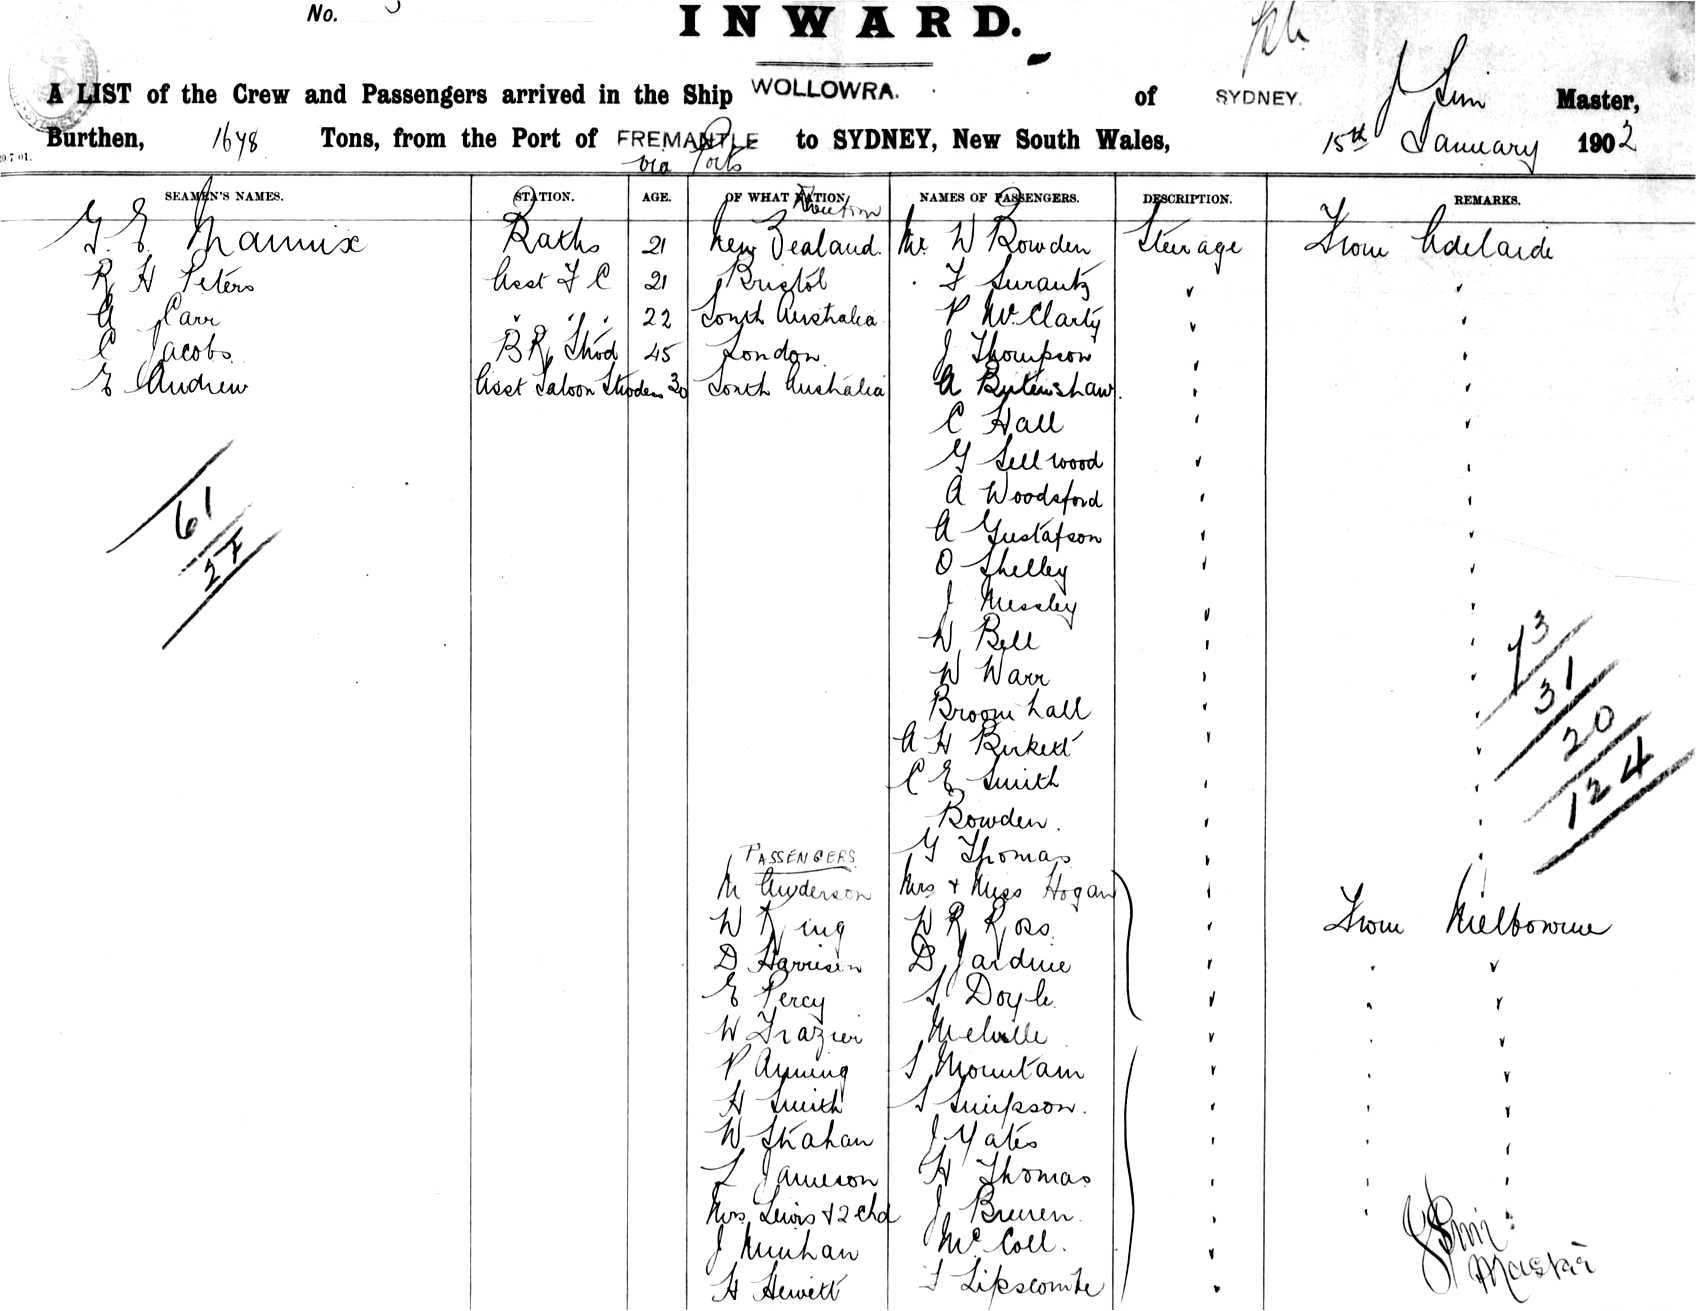 No.
INWARD.
A LIST of the Crew and Passengers arrived in the Ship WOLLOWRA. of SYDNEY. J Sim Master,
Burthen, 1678 Tons, from the Port of FREMANTLE to SYDNEY, New South Wales, 15th January 1902
via Ports
SEAMEN'S NAMES. STATION. AGE. OF WHAT NATION. NAMES OF PASSENGERS. DESCRIPTION. REMARKS.
G. E. Mannix 21 New Zealand. Mr W Bowden Steerage From Adelaide
R H Peters Asst F C 21 Bristol F Surautz "
A Carr " " " 22 South Australia P McClarty "
C Jacobs BR Stwd 45 London J Thompson "
E Andrew Asst Saloon 30 South Australia A "
C Hall "
G Sellwood "
A Woodsford "
A Gustafson "
O Shelley "
J Messley "
W Bell "
W Warr "
Broomhall "
A H Birkett "
C E Smith "
Bowden. "
PASSENGERS G Thomas "
M Anderson Mrs + Miss Hogan "
W King W R Ross " From Melbourne
D Harrison D Jardine "
E Percy S Doyle "
W Frazier Melville "
P Anning S Mountain "
H Smith S Simpson. "
W Strahan J Yates "
L Jameson H Thomas "
Mrs Lewis + 2 chd J Breuen "
J Minihan McColl. "
H Hewett T Lipscombe "
61
27
73
31
20
124
J Sim
Master